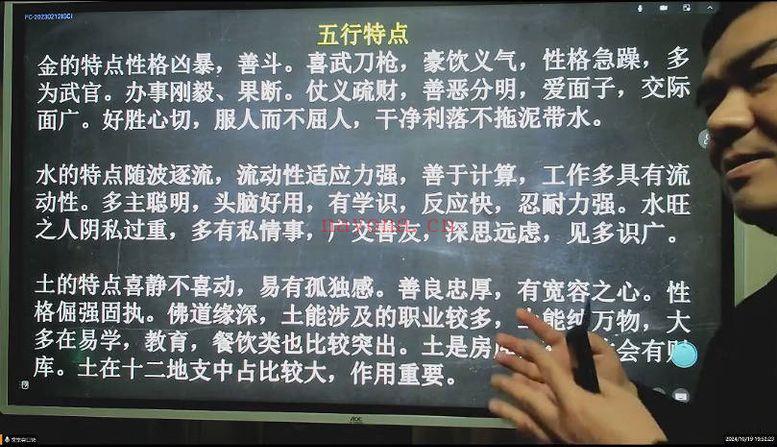 PC-20230212IGCI
五行特点
金的特点性格凶暴，善斗。喜武刀枪，豪饮义气，性格急躁，多
为武官。办事刚毅、果断。仗义疏财，善恶分明，爱面子，交际
面广。好胜心切，服人而不屈人，干净利落不拖泥带水。
水的特点随波逐流，流动性适应力强，善于计算，工作多具有流
动性。多主聪明，头脑好用，有学识，反应快，忍耐力强。水旺
之人阴私过重，多有私情事，广交善友，深思远虑，见多识广。
nayona.cn
土的特点喜静不喜动，易有孤独感。善良忠厚，有宽容之心。性
格倔强固执。佛道缘深，土能涉及的职业较多，能纳万物，大
多在易学，教育，餐饮类也比较突出。土是房 会有财
库。土在十二地支中占比较大，作用重要。
AOC
2024/10/19 19:35:23